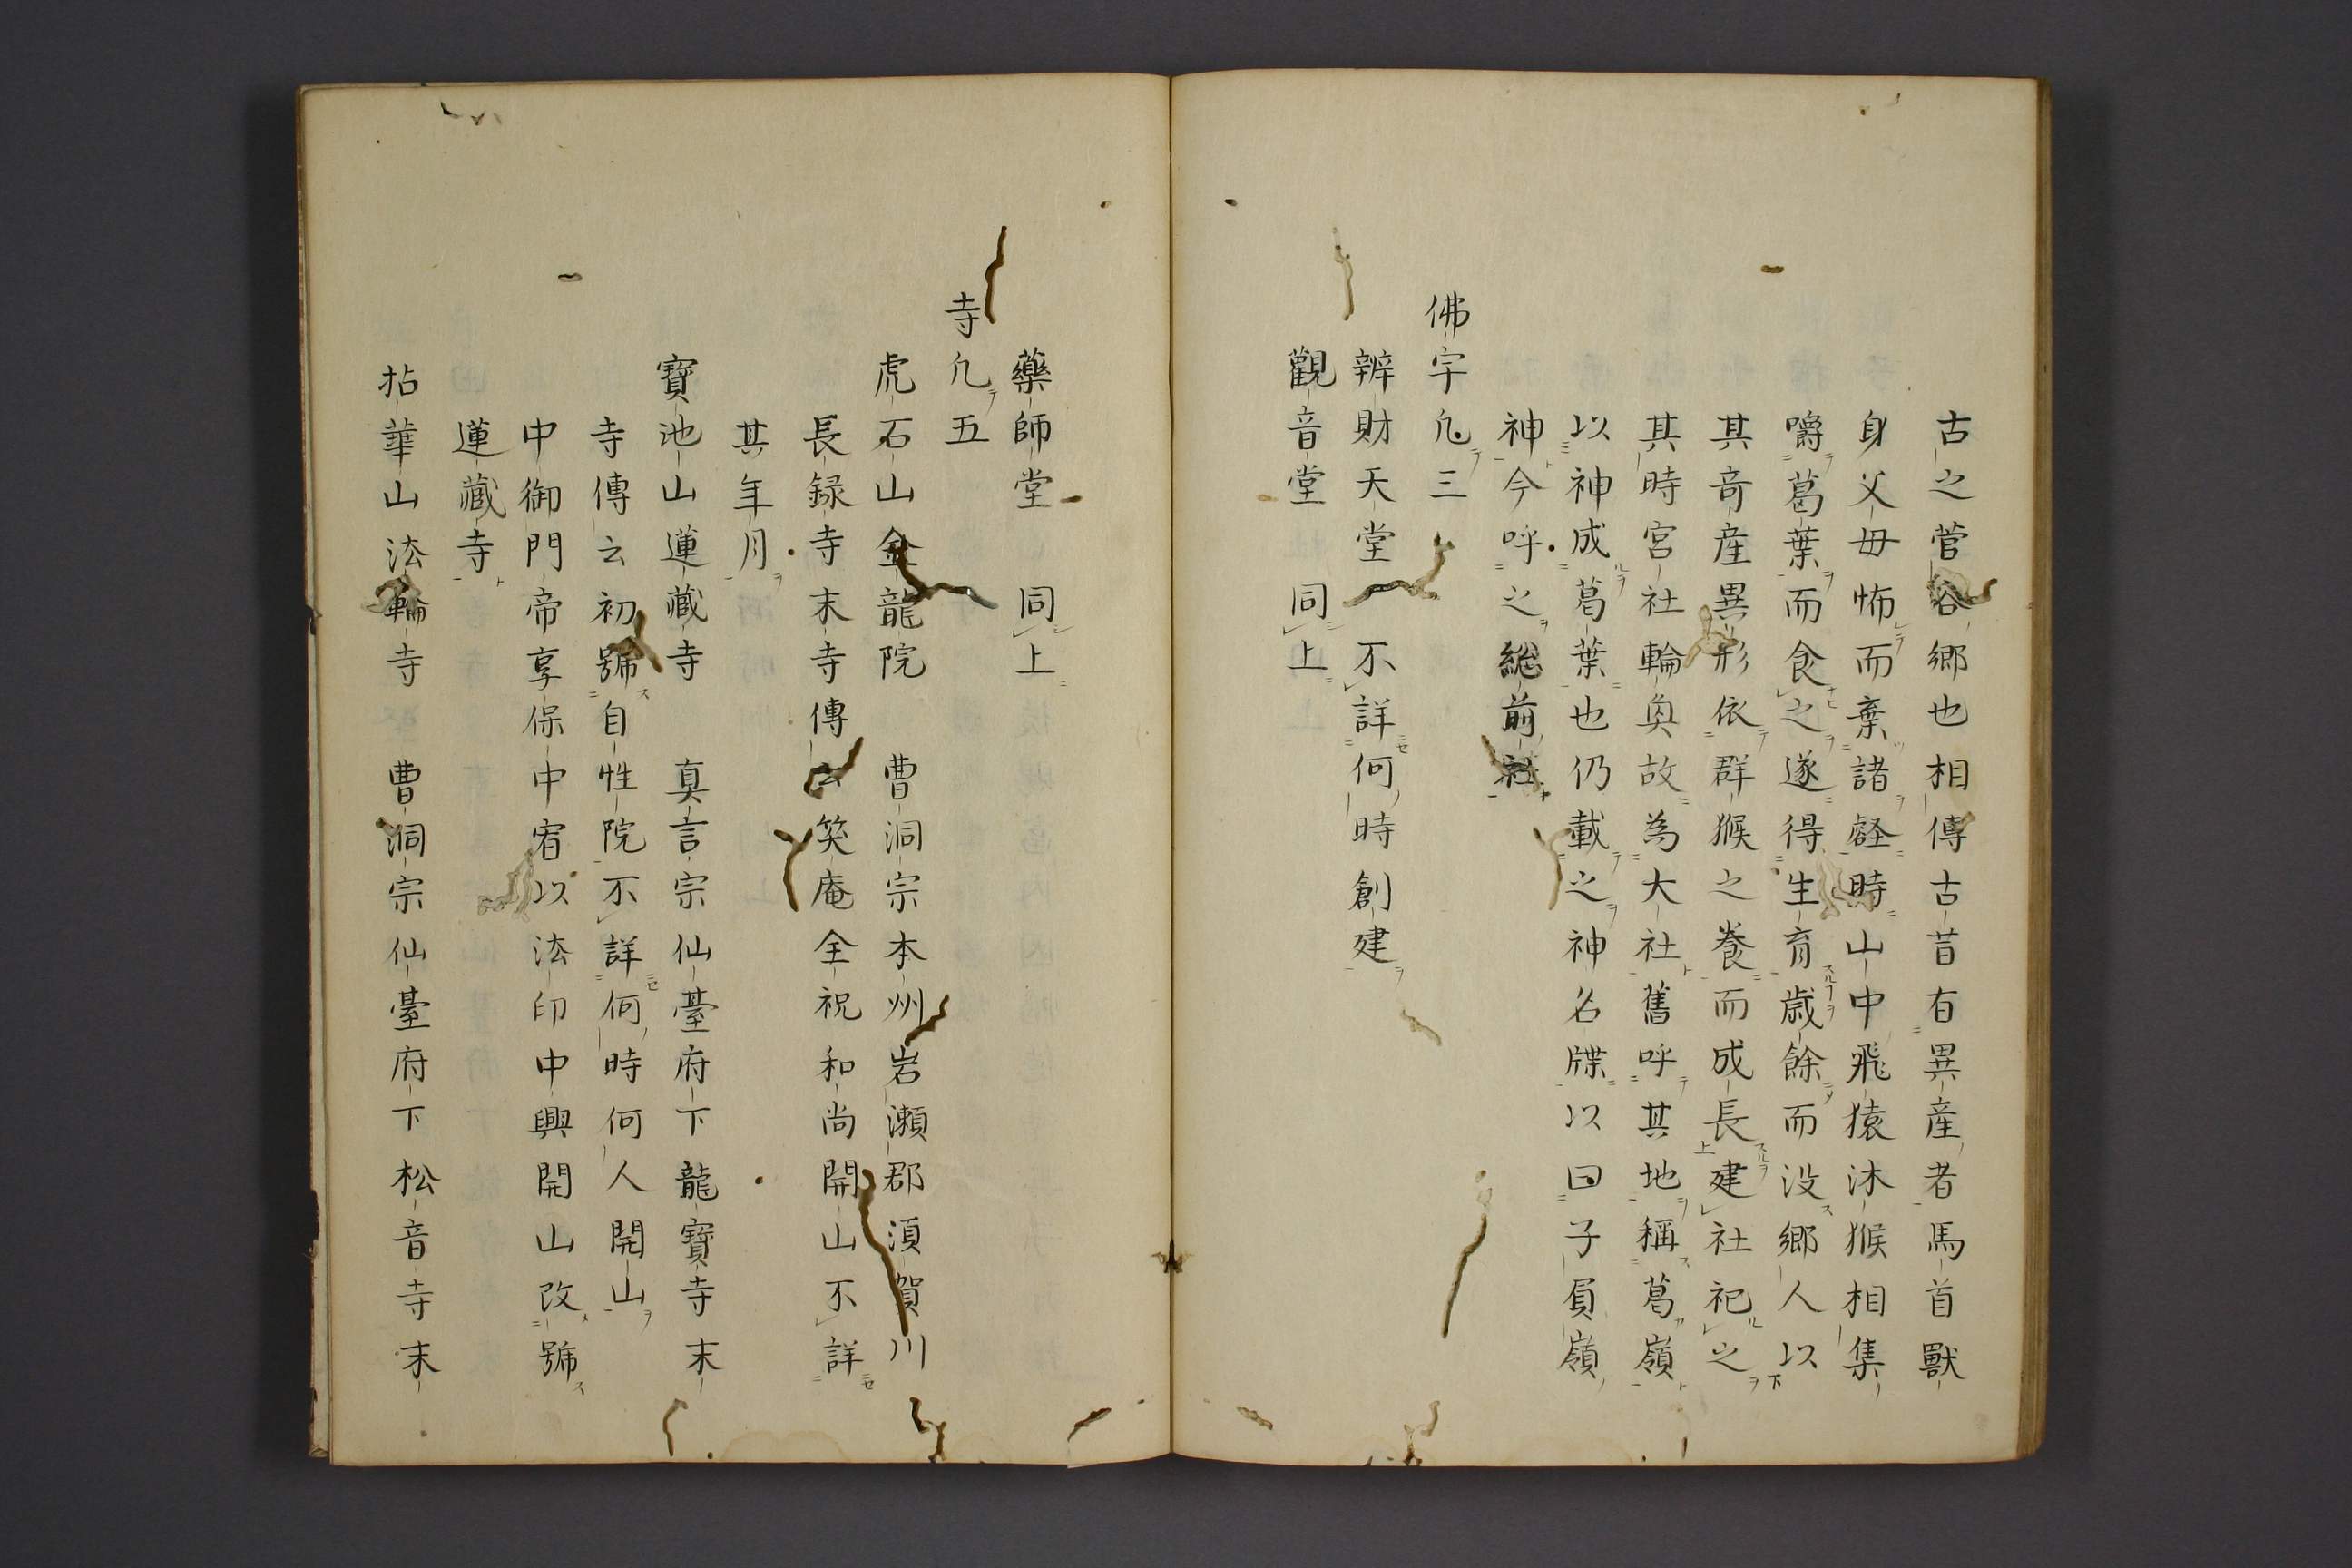 古之菅谷郷也相傳古昔有異産者馬首獸
身父母怖而棄諸壑時山中飛猿沐猴相集
嚼葛葉而食之遂得生育歳餘而没郷人以
其竒産異形依群猴之養而成長建社祀之
其時宮社輪奐故為大社舊呼其地稱葛嶺
以神成葛葉也仍載之神名牒以曰子負嶺
神今呼之総前社
佛宇凢三
辨財天堂 不詳何時創建
觀音堂 同上
藥師堂 同上
寺凢五
虎石山金龍院 曹洞宗本州岩瀬郡湏賀川
長録寺末寺傳云笑庵全祝和尚開山不詳
其年月
寳池山蓮藏寺 真言宗仙臺府下龍寳寺末
寺傳云初號自性院不詳何時何人開山
中御門帝享保中宥以法印中興開山改號
蓮藏寺
拈華山法輪寺 曹洞宗仙臺府下松音寺末